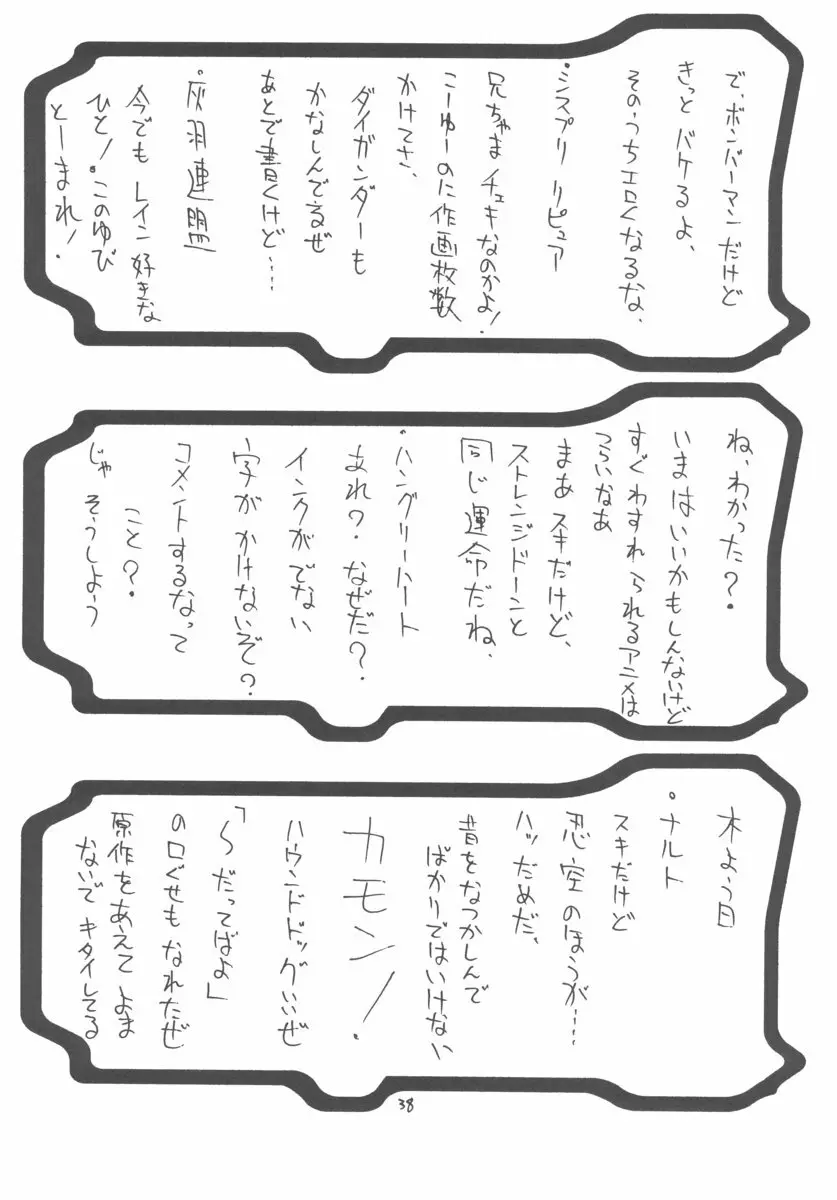 で、ボンバーマンだけど
きっとバケるよ、
そのうちエロくなるな、
・シスプリ リピュア
兄ちゃまチェキなのかよ！
こーゆーのに作画枚数
かけてさ、
ダイガンダーも
かなしんでるぜ
あとで書くけど…
・灰羽連盟
今でもレイン好きな
ひと！このゆび
とーまれ！
ね、わかった？
いまはいいかもしんないけど
すぐわすれられるアニメは
つらいなあ
まあスキだけど、
ストレンジドーンと
同じ運命だね、
・ハングリーハート
あれ？なぜだ？
インクがでない
字がかけないぞ？
コメントするなって
こと？
じゃそうしよう
木よう日
・ナルト
スキだけど
忍空のほうが…
ハッだめだ、
昔をなつかしんで
ばかりではいけない
カモン！
ハウンドドッグいいぜ
「〜だってばよ」
の口ぐせもなれたぜ
原作をあえてよま
ないでキタイしてる
38